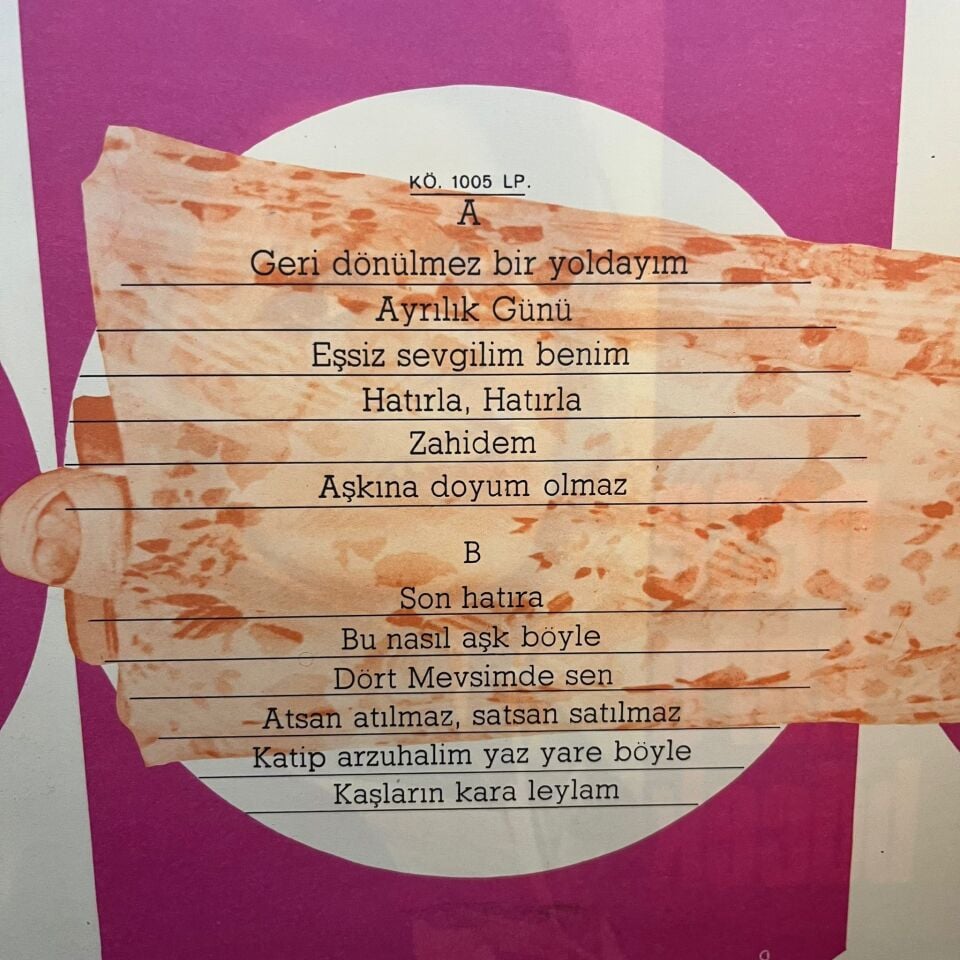 KÖ. 1005 LP.
A
Geri dönülmez bir yoldayım
Ayrılık Günü
Eşsiz sevgilim benim
Hatırla, Hatırla
Zahidem
Aşkına doyum olmaz
B
Son hatıra
Bu nasıl aşk böyle
Dört Mevsimde sen
Atsan atılmaz, satsan satılmaz
Katip arzuhalim yaz yare böyle
Kaşların kara leylam